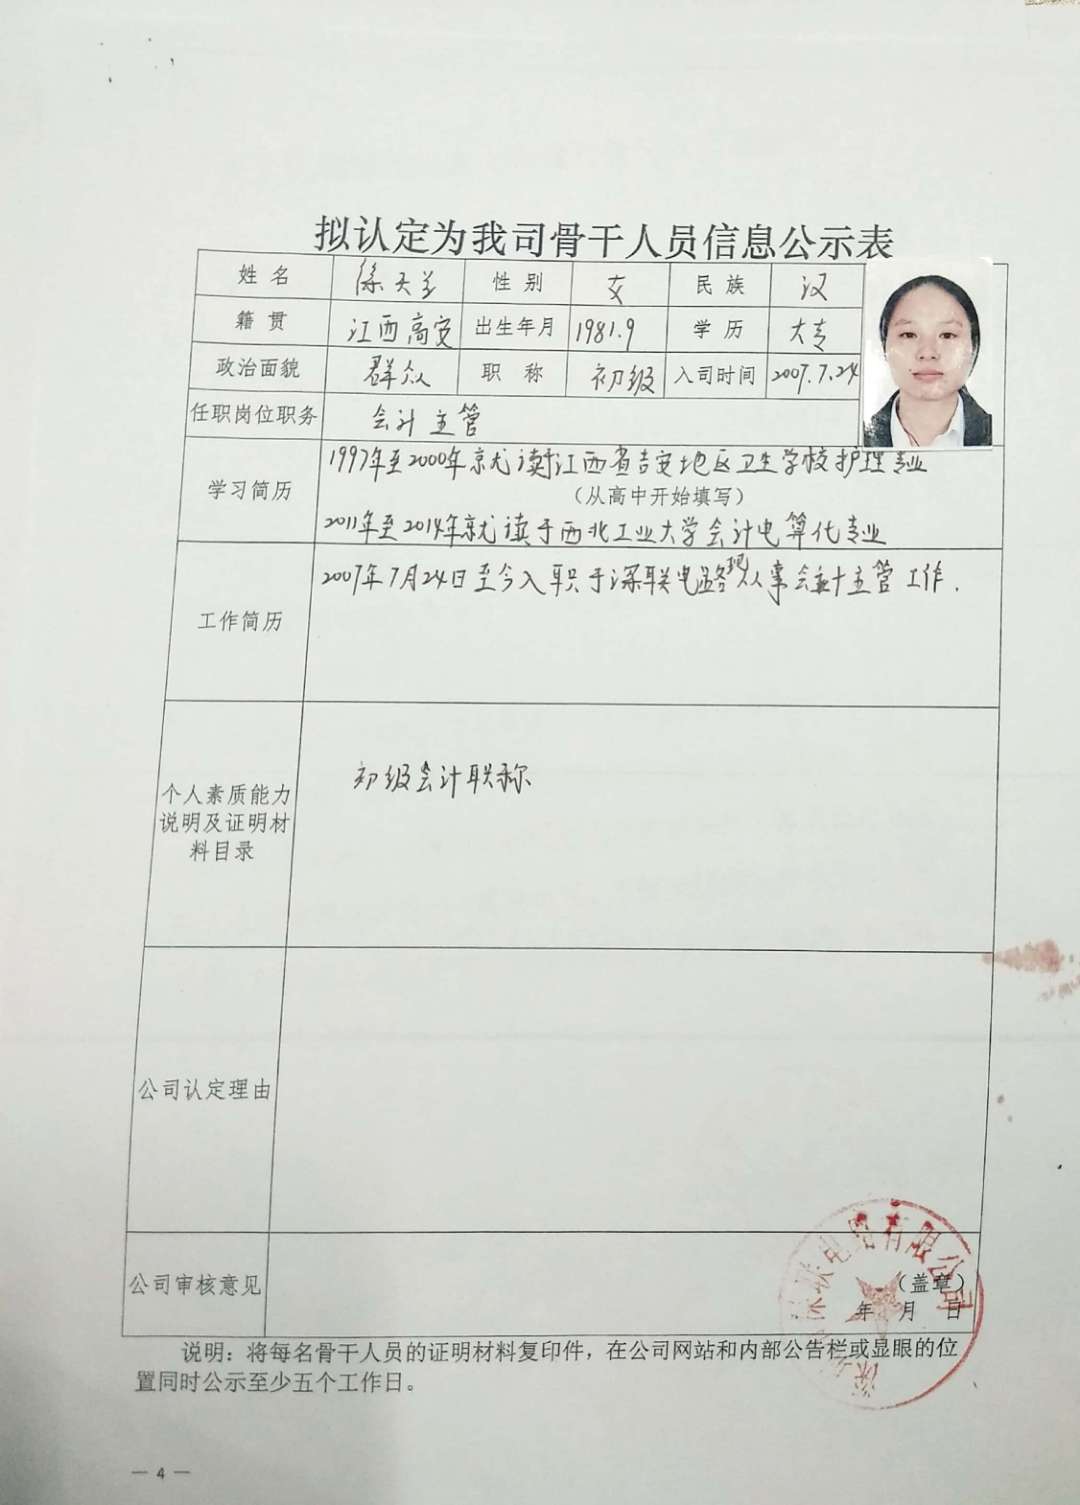 拟认定为我司骨干人员信息公示表
姓 名 徐天兰 性 别 女 民 族 汉
籍 贯 江西高安 出生年月 1981.9 学 历 大专
政治面貌 群众 职 称 初级 入司时间 2007.7.24
任职岗位职务 会计主管
1997年至2000年京尤读于江西省吉安地区卫生学校护理专业
学习简历 (从高中开始填写)
2011年至2014年京尤读于西北工业大学会计电算化专业
2007年7月24日至今入职于深联电路现从事会计主管工作.
工作简历
初级会计职称
个人素质能力
说明及证明材
料目录
公司认定理由
公司审核意见
(盖章)
年 月 日
深联电路有限公司
说明：将每名骨干人员的证明材料复印件，在公司网站和内部公告栏或显眼的位
置同时公示至少五个工作日。
— 4 —